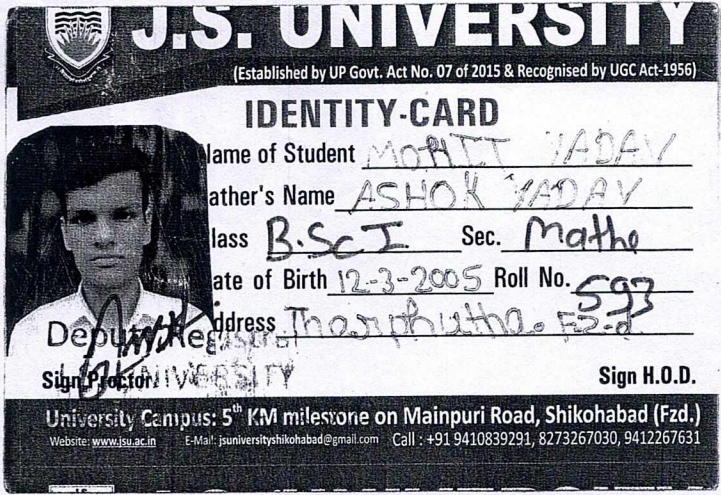 J.S. UNIVERSITY
(Established by UP Govt. Act No. 07 of 2015 & Recognised by UGC Act-1956)
IDENTITY-CARD
Name of Student MOHIT YADAV
ather's Name ASHOK YADAV
lass B.Sc I Sec. Mathe
ate of Birth 12-3-2005 Roll No. 593
ddress
Deputy Registrar
Sign Proctor UNIVERSITY Sign H.O.D.
University Campus: 5th KM milestone on Mainpuri Road, Shikohabad (Fzd.)
Website: www.jsu.ac.in E-Mail: jsuniversityshikohabad@gmail.com Call : +91 9410839291, 8273267030, 9412267631